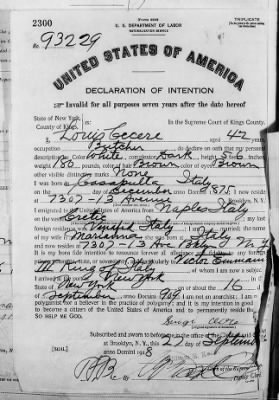 2300
Form 2203
U. S. DEPARTMENT OF LABOR
NATURALIZATION SERVICE
TRIPLICATE
No. 93229
UNITED STATES OF AMERICA
DECLARATION OF INTENTION
Invalid for all purposes seven years after the date hereof
State of New York,
County of Kings, ss:
In the Supreme Court of Kings County.
I, Louis Cecere, aged 42
years, occupation Butcher, do declare on oath that my personal
description is: Color White, complexion Dark, height 5 feet inches,
weight 180 pounds, color of hair Brown, color of eyes Brown
other visible distinctive marks None
I was born in Casapulla Italy
on the day of December, anno Domini 1875; I now reside
at 7307-13 Avenue
I emigrated to the United States of America from Naples Italy
on the vessel
foreign residence was Italy; I am married; the name
of my wife is Marianna Italy
and now resides at 7307-13 Ave Bklyn N.Y.
It is my bona fide intention to renounce forever all allegiance and fidelity to any foreign
prince, potentate, state, or sovereignty, and particularly to Victor Emanuel
III King of Italy, of whom I am now a subject.
I arrived at the port of New York
State of New York, on or about the 16 day
of September, anno Domini 1909; I am not an anarchist; I am not a
polygamist nor a believer in the practice of polygamy; and it is my intention in good faith
to become a citizen of the United States of America and to permanently reside therein:
SO HELP ME GOD.
Subscribed and sworn to before me in the office of the Clerk of said Court
at Brooklyn, N. Y., this 22 day of September
anno Domini 1918
[SEAL]